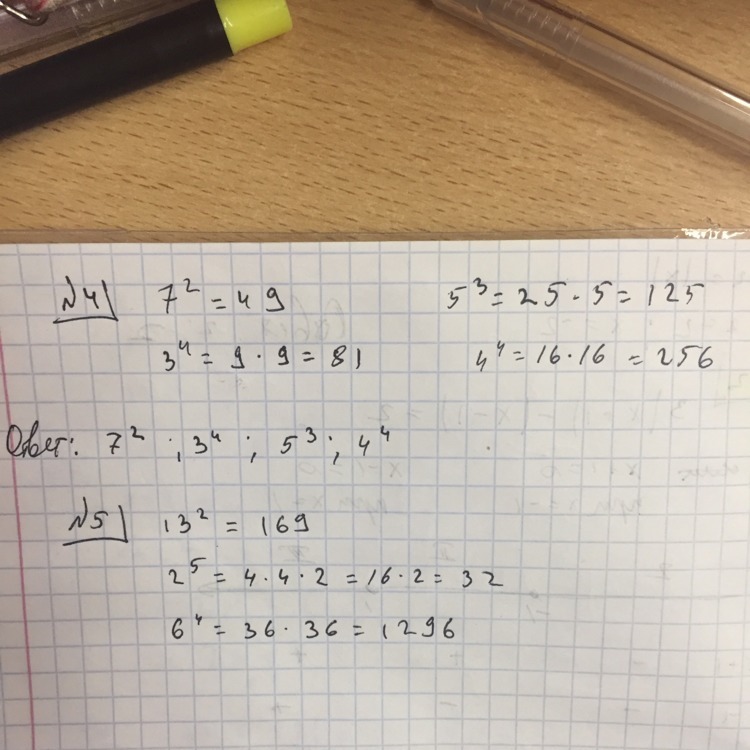 №4 7² = 49 5³ = 25 · 5 = 125
3⁴ = 9 · 9 = 81 4⁴ = 16 · 16 = 256
Ответ: 7² ; 3⁴ ; 5³ ; 4⁴
№5 13² = 169
2⁵ = 4 · 4 · 2 = 16 · 2 = 32
6⁴ = 36 · 36 = 1296